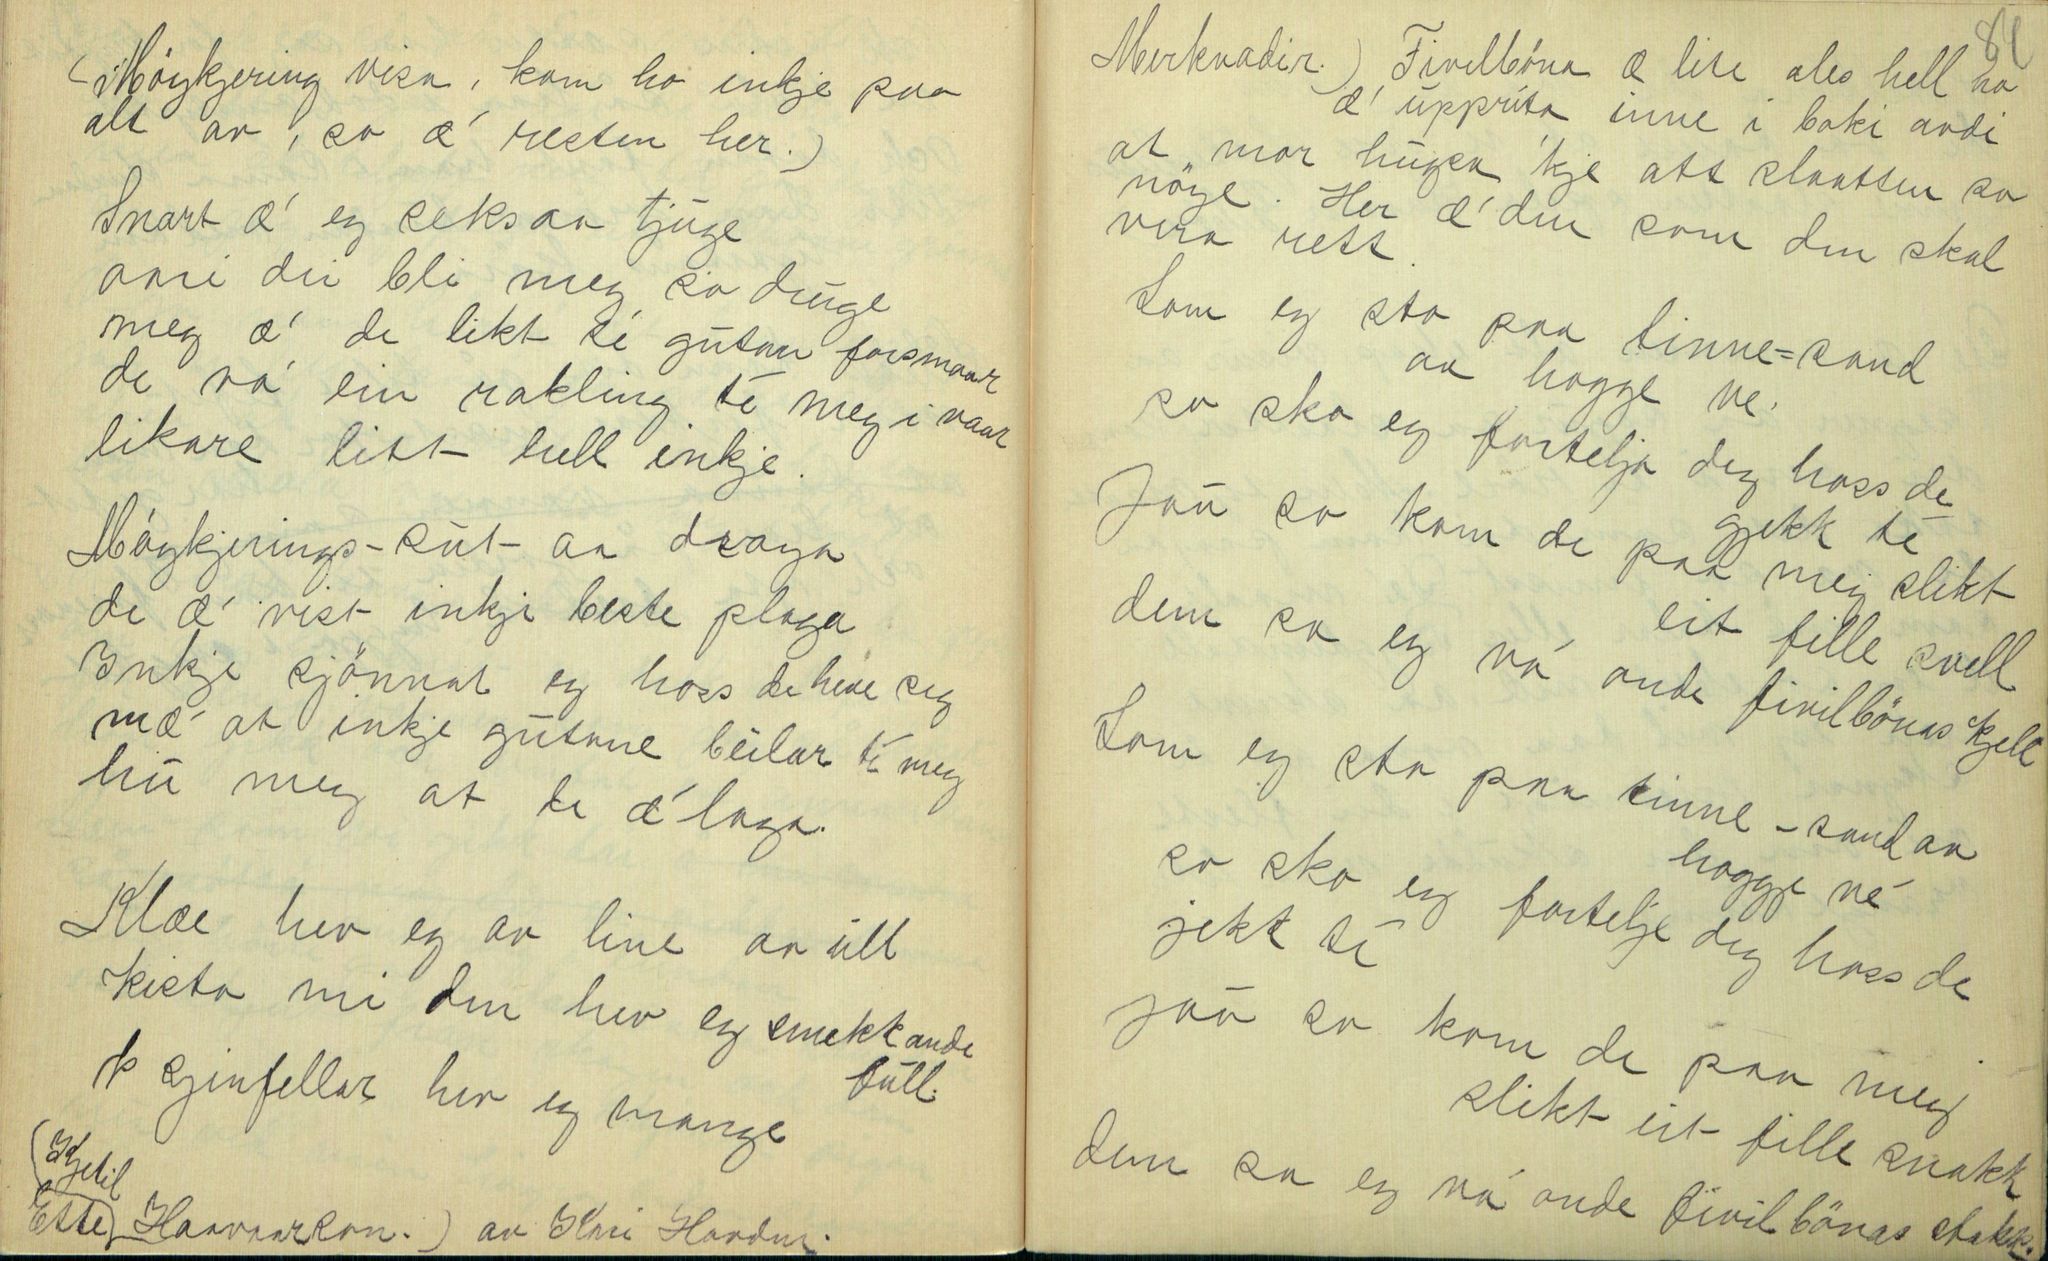 (Möykjering visa, kom ho inkje paa
alt an, so æ' resten her.)
Snart æ' eg seks aa tjuge
anri dei bli meg so duge
meg æ' de likt té gutan forsmaar
de va' ein rakling té meg i vaar
likare litt hell inkje.
Möykjerings-sut aa draga
de æ' vist inkje beste plaga
Inkje sjönnar eg hoss de heve seg
mæ' at inkje gutane beilar té meg
hu meg at de æ' laga.
Klæe hev eg av line av ull
kista mi den hev eg smekkande
full.
sjinfellar hev eg mange
(Kjetil
Ette Haavaarson.) av Kari Hovden.
84
Merknadir.) Fivelböna æ lite ales hell ho
æ' uppsita inne i boki andi
at mor hugsa 'kje att slaatten so
nöye. Her æ' den som den skal
vera rett.
Som eg sto paa tinne=sand
aa hogge ve.
so ska eg fortelja deg hoss de
gjekk té
Jau so kom de paa meg slikt
eit fille snell
dem sa eg va' onde fivilbönas kjell
Som eg sto paa tinne-sand aa
hogge vé
so ska eg fortelje deg hoss de
jekk té
jau so kom de paa meg
slikt eit fille snakk
dem sa eg va' onde fivilbönas stakk.